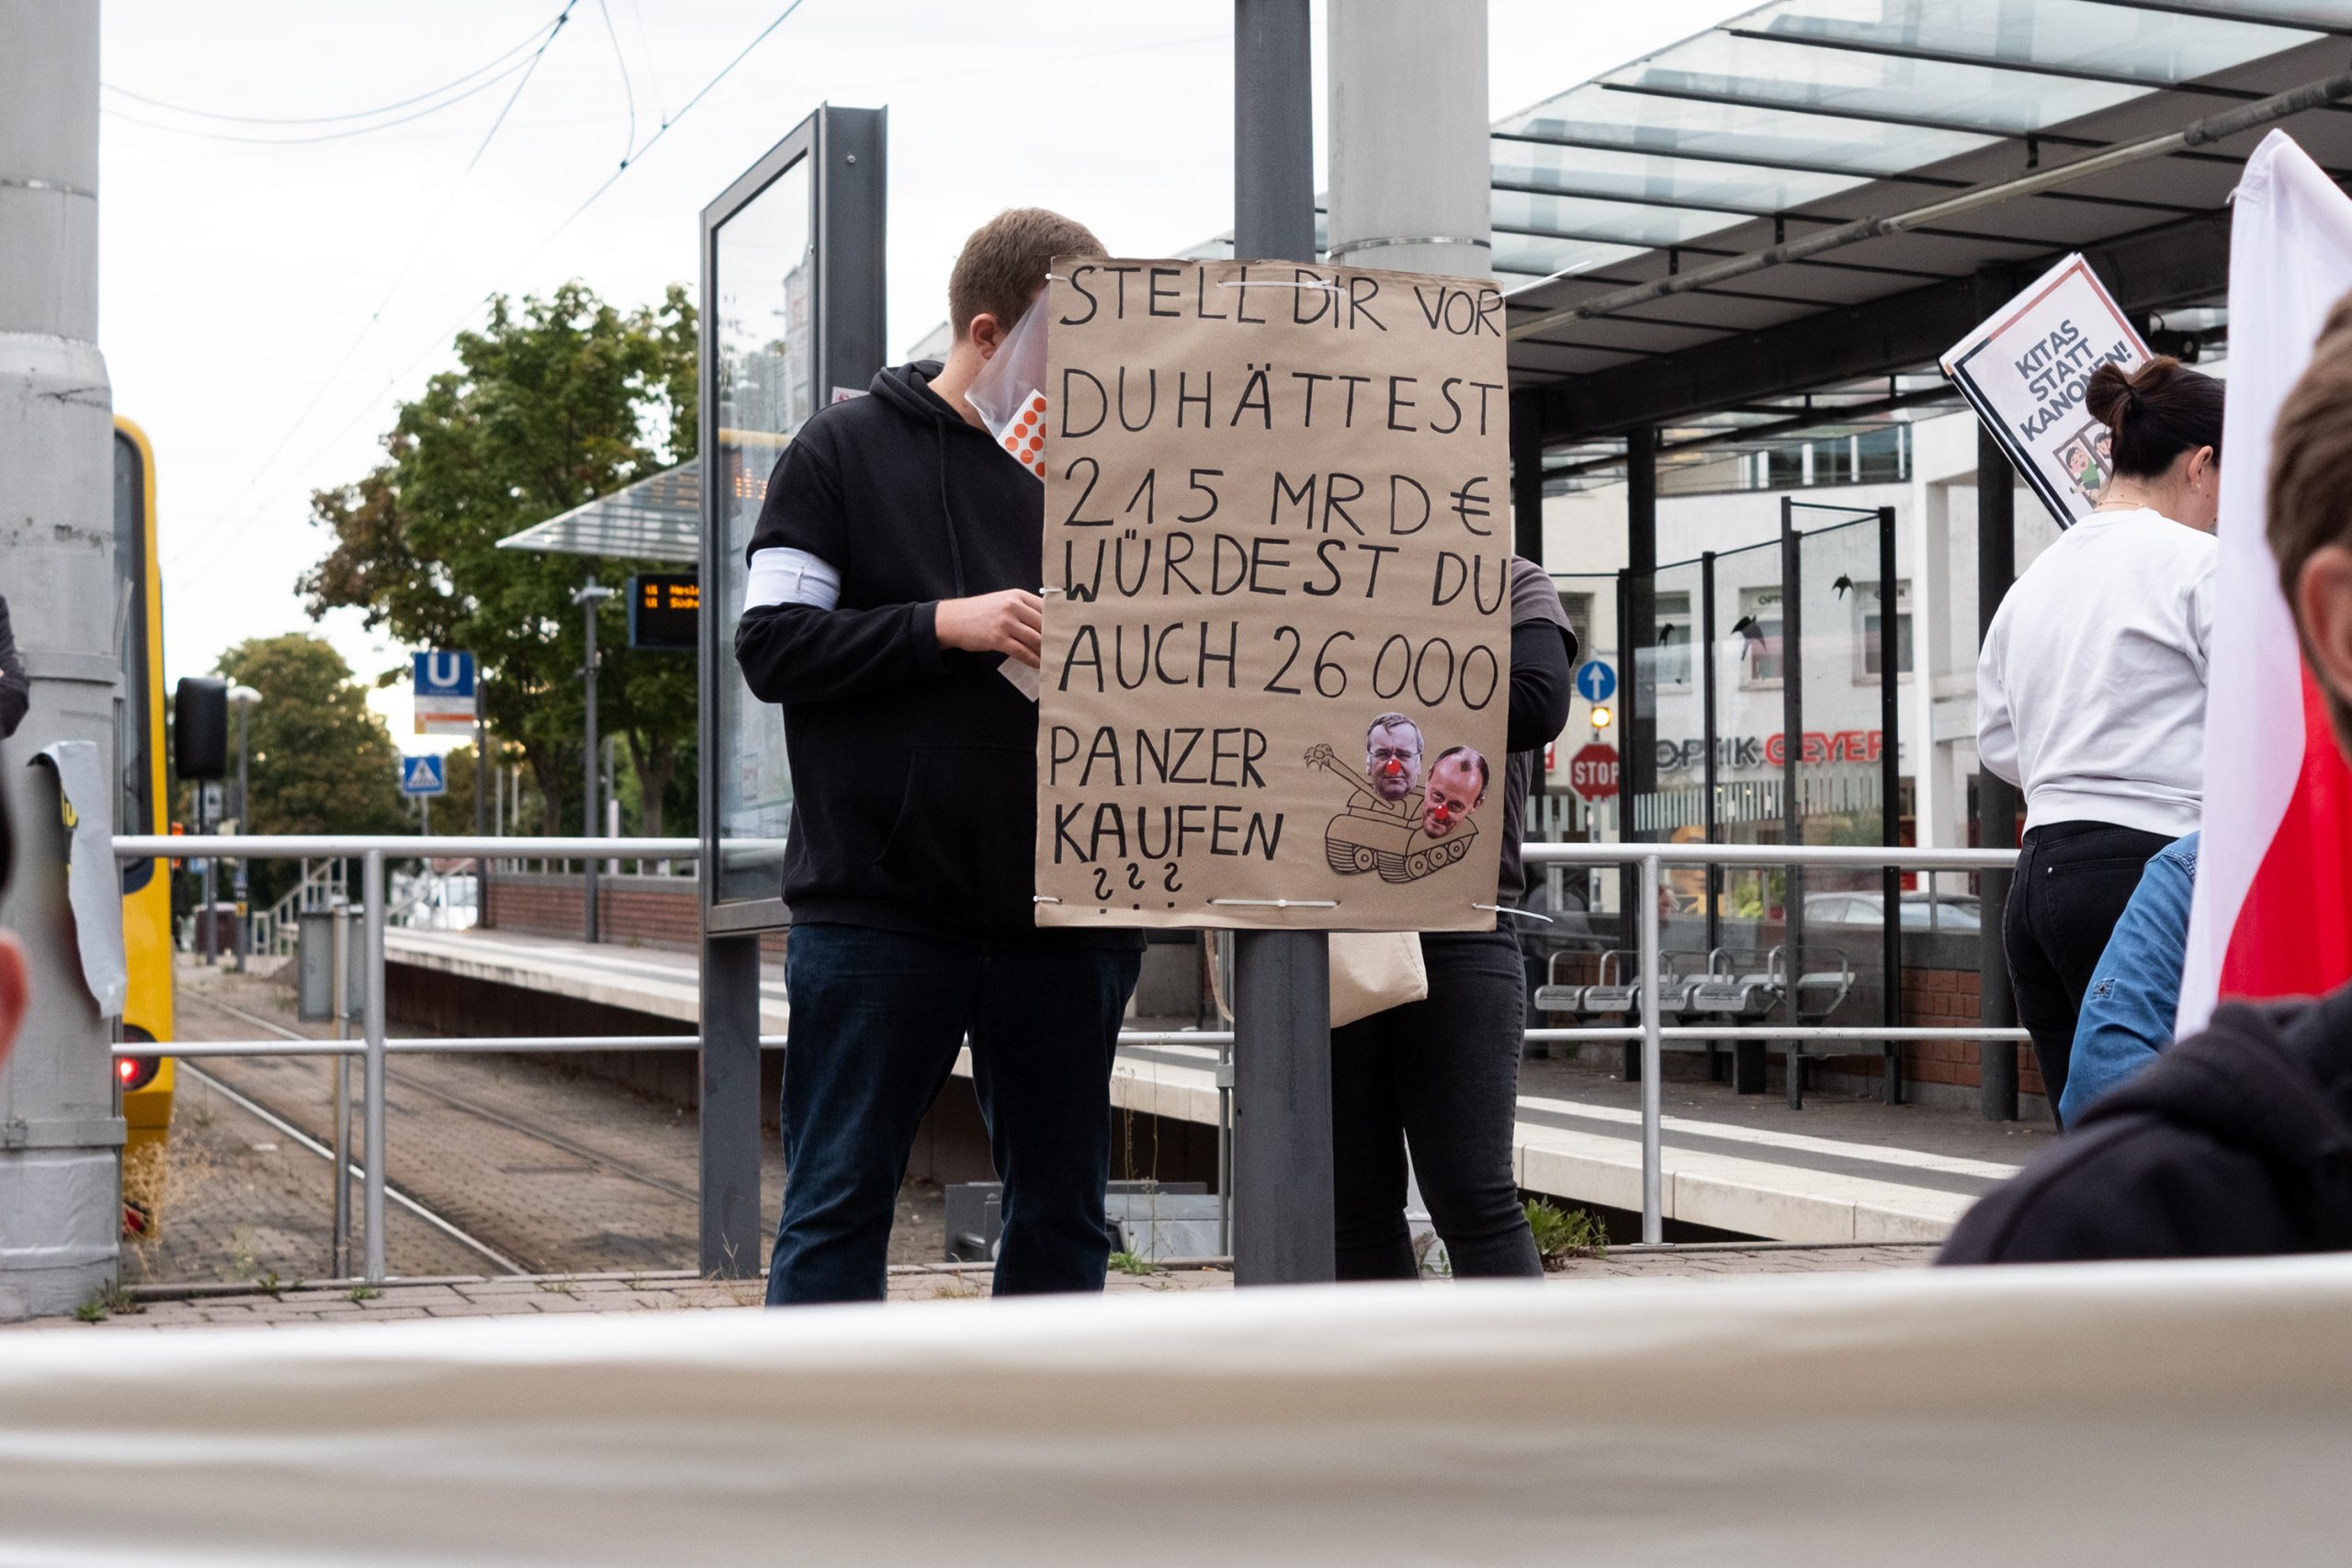 STELL DIR VOR
DU HÄTTEST
215 MRD €
WÜRDEST DU
AUCH 26 000
PANZER
KAUFEN
???
KITAS
STATT
KANONEN!
U
U1
U1
STOP
OPTIK GEYER